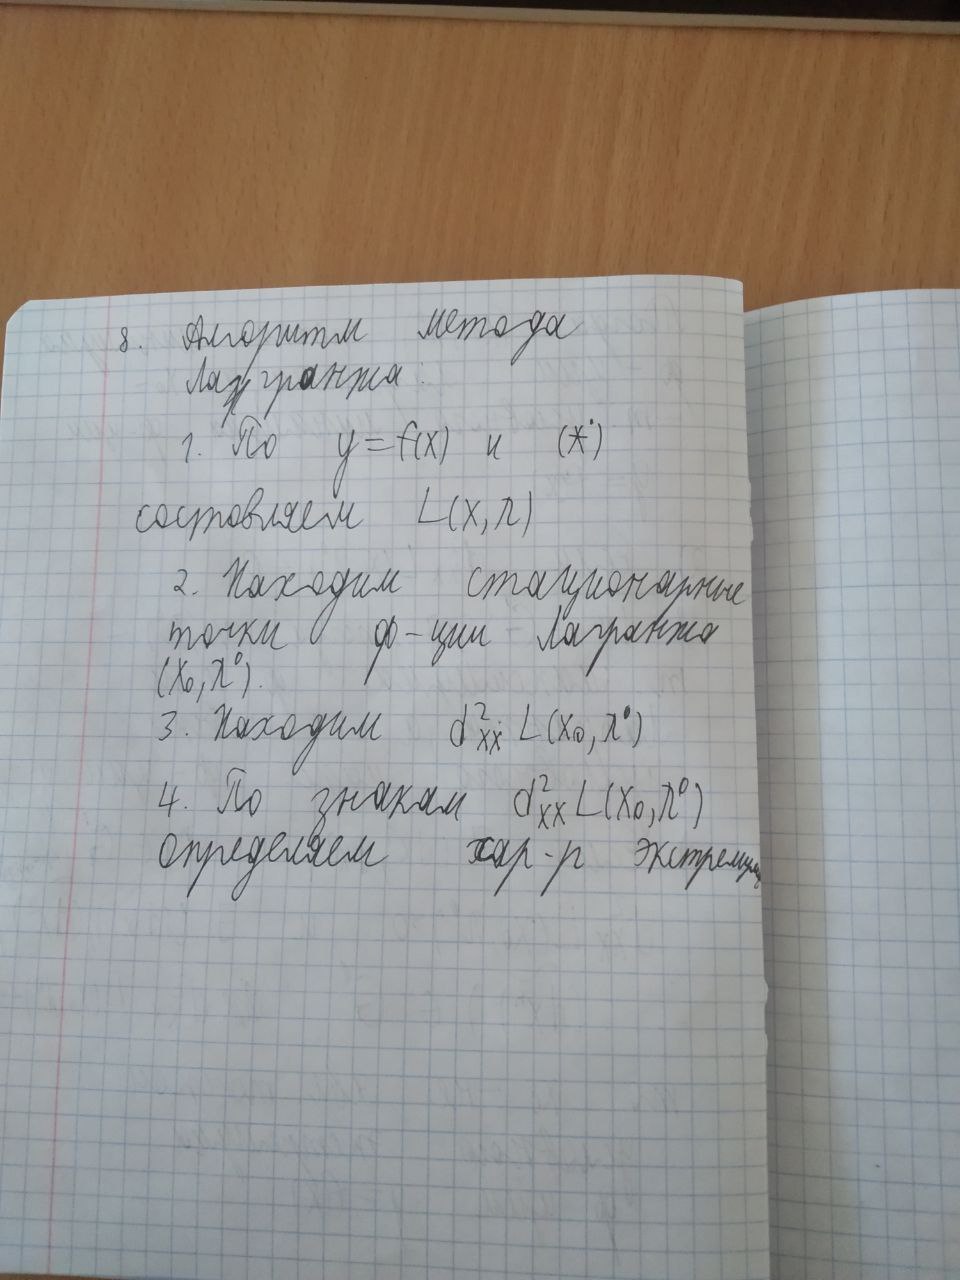 8. Алгоритм метода
Лагранжа.
1. По y=f(x) и (x˙)
составляем L(x,λ)
2. Находим стационарные
точки ф-ции Лагранжа
(x₀, λ⁰).
3. Находим d²ₓₓ L(x₀, λ⁰)
4. По знакам d²ₓₓ L(x₀, λ⁰)
определяем хар-р экстремума